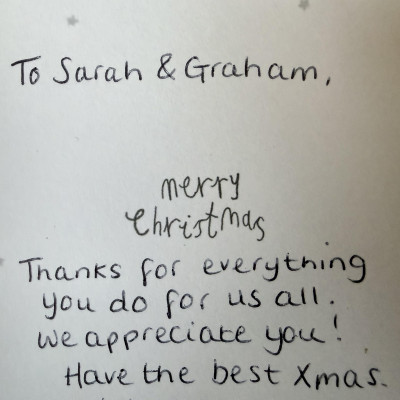 To Sarah & Graham,
merry
christmas
Thanks for everything
you do for us all.
We appreciate you!
Have the best Xmas.